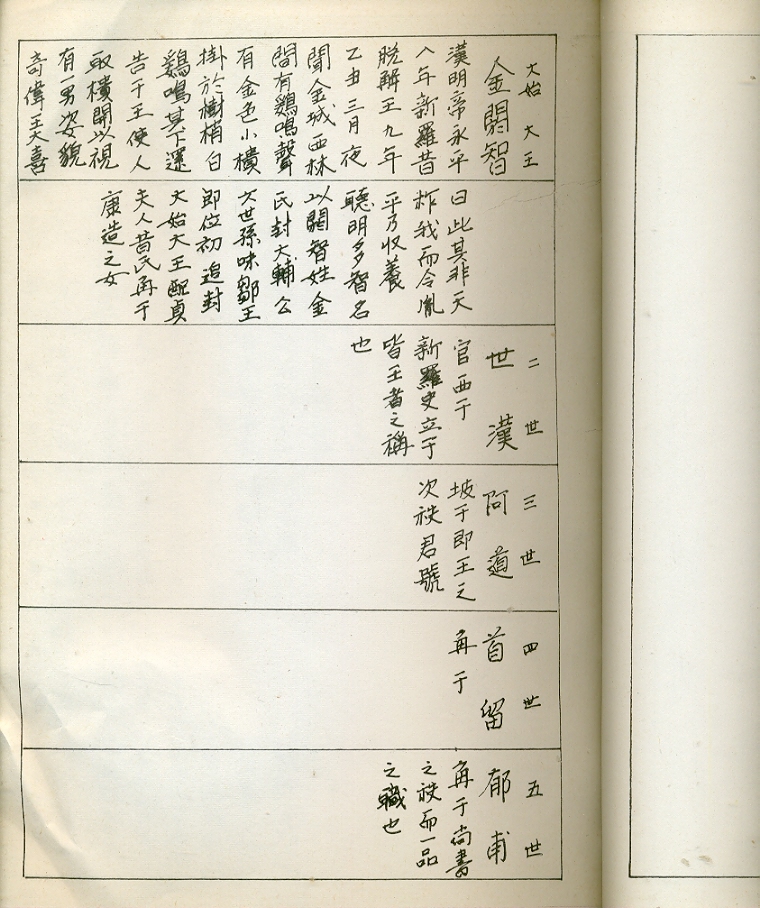 大始大王
金閼智
漢明帝永平
八年新羅昔
脫解王九年
乙丑三月夜
聞金城西林
間有鷄鳴聲
有金色小櫝
掛於樹梢白
鷄鳴其下還
告于王使人
取櫝開以視
有一男姿貌
奇偉王大喜
曰此其非天
祚我而令胤
乎乃収養
聰明多智名
以閼智姓金
氏封大輔公
六世孫味鄒王
即位初追封
大始大王配貞
夫人昔氏角于
康造之女
二世
世漢
官西于
新羅史立于
皆王者之稱
也
三世
阿道
坡于即王之
次秩君號
四世
首留
角于
五世
郁甫
角于尚書
之秩而一品
之職也